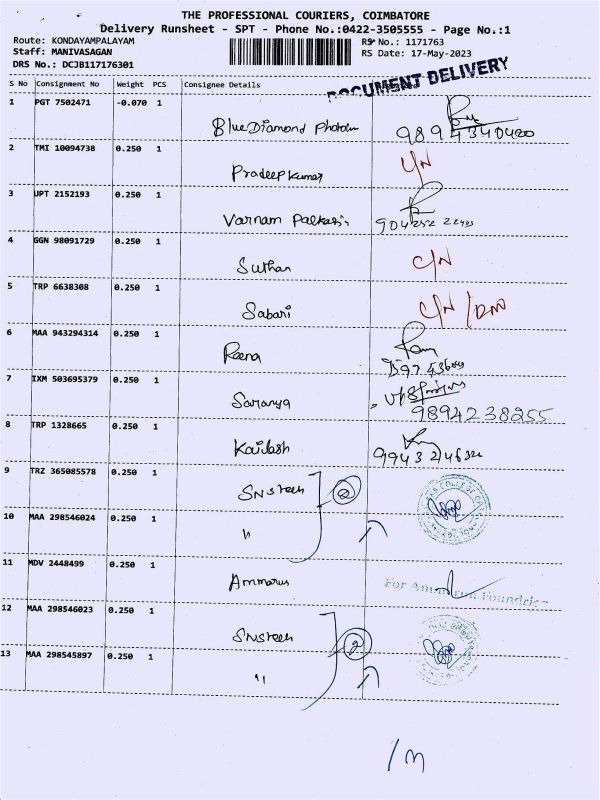 THE PROFESSIONAL COURIERS, COIMBATORE
Delivery Runsheet - SPT - Phone No.:0422-3505555 - Page No.:1
Route: KONDAYAMPALAYAM
RS No.: 1171763
Staff: MANIVASAGAN
RS Date: 17-May-2023
DRS No.: DCJB117176301
DOCUMENT DELIVERY
S No Consignment No Weight PCS Consignee Details
1 PGT 7502471 -0.070 1
BlueDiamond 9894340420
2 TMI 10094738 0.250 1
Pradeepkumar C/N
3 UPT 2152193 0.250 1
Varnam
4 GGN 98091729 0.250 1
Suthan C/N
5 TRP 6638308 0.250 1
Sabari C/N
6 MAA 943294314 0.250 1
Reena
7 IXM 503695379 0.250 1
Saranya 9894238255
8 TRP 1328665 0.250 1
Kailash
9 TRZ 365085578 0.250 1
SNS tech 2
10 MAA 298546024 0.250 1
"
11 MDV 2448499 0.250 1
Ammarun For Ammarun Foundries
12 MAA 298546023 0.250 1
SNS tech 2
13 MAA 298545897 0.250 1
"